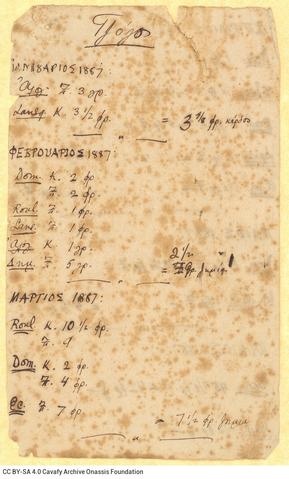 ΙΑΝΟΥΑΡΙΟΣ 1887:
Ζ. 3 φρ.
Lansq. Κ. 3 1/2 φρ.
= 3 φρ. κέρδος
ΦΕΒΡΟΥΑΡΙΟΣ 1887:
Dom. Κ. 2 φρ
Ζ. 2 φρ.
Roul Ζ. 1 φρ.
Lans. Ζ. 1 φρ.
Κ. 1 φρ.
Ζ. 5 φρ.
2 1/2
= φρ. ζημία
ΜΑΡΤΙΟΣ 1887:
Roul Κ. 10 1/2 φρ.
Ζ.
Dom. Κ. 2 φρ.
Ζ. 4 φρ.
Ζ. 7 φρ.
= 7 1/2 φρ. ζημία
CC BY-SA 4.0 Cavafy Archive Onassis Foundation